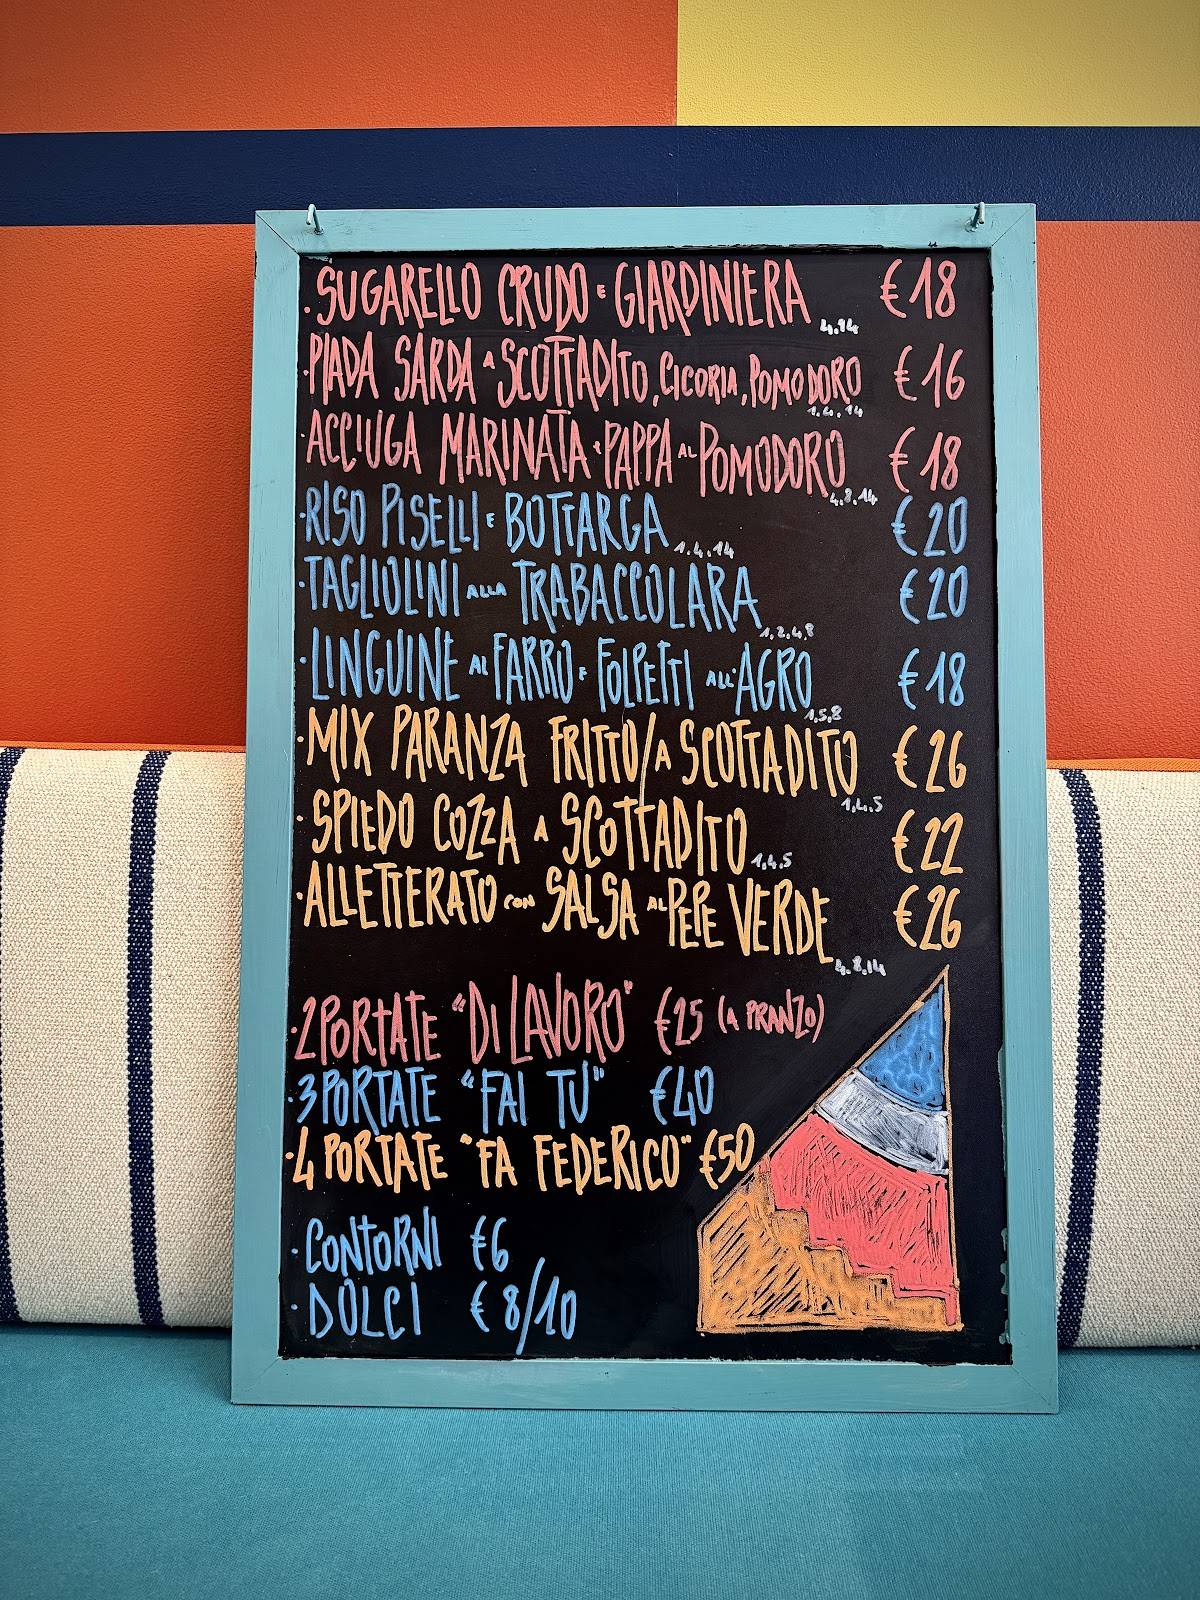 · SUGARELLO CRUDO E GIARDINIERA 4.14 €18
· PIADA SARDA A SCOTTADITO, CICORIA, POMODORO 1.4.14 €16
· ACCIUGA MARINATA E PAPPA AL POMODORO 4.8.14 €18
· RISO PISELLI E BOTTARGA 1.4.14 €20
· TAGLIOLINI ALLA TRABACCOLARA 1.2.4.8 €20
· LINGUINE AL FARRO E FOLPETTI ALL'AGRO 1.5.8 €18
· MIX PARANZA FRITTO/A SCOTTADITO 1.4.5 €26
· SPIEDO COZZA A SCOTTADITO 1.4.5 €22
· ALLETTERATO CON SALSA AL PEPE VERDE 4.8.14 €26
· 2 PORTATE "DI LAVORO" €25 (A PRANZO)
· 3 PORTATE "FAI TU" €40
· 4 PORTATE "FA FEDERICO" €50
· CONTORNI €6
· DOLCI € 8/10